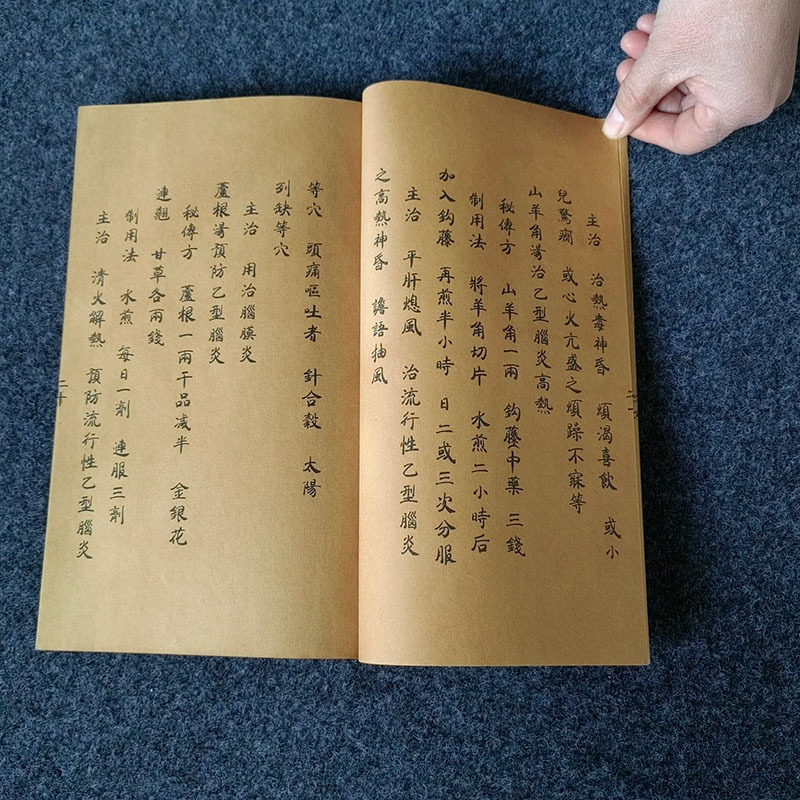 主治 治熱毒神昏 煩渴喜飲 或小
兒驚癇 或心火亢盛之煩躁不寐等
山羊角湯治乙型腦炎高熱
秘傳方 山羊角一兩 鈎藤中藥 三錢
制用法 將羊角切片 水煎二小時后
加入鈎藤 再煎半小時 日二或三次分服
主治 平肝熄風 治流行性乙型腦炎
之高熱神昏 譫語抽風
等穴 頭痛嘔吐者 針合穀 太陽
列缺等穴
主治 用治腦膜炎
蘆根湯預防乙型腦炎
秘傳方 蘆根一兩干品减半 金銀花
連翹 甘草各兩錢
制用法 水煎 每日一劑 連服三劑
主治 清火解熱 預防流行性乙型腦炎
二十